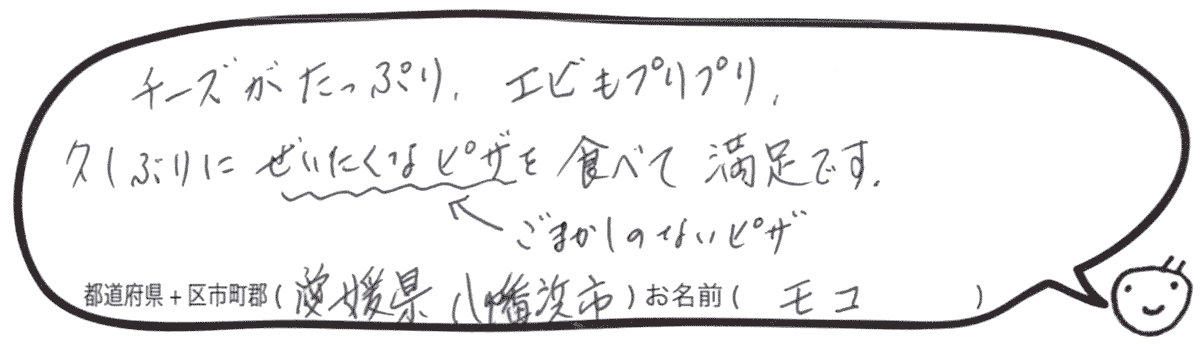 チーズがたっぷり、エビもプリプリ、
久しぶりにぜいたくなピザを食べて満足です。
ごまかしのないピザ
都道府県+区市町郡(愛媛県八幡浜市)お名前(モコ)